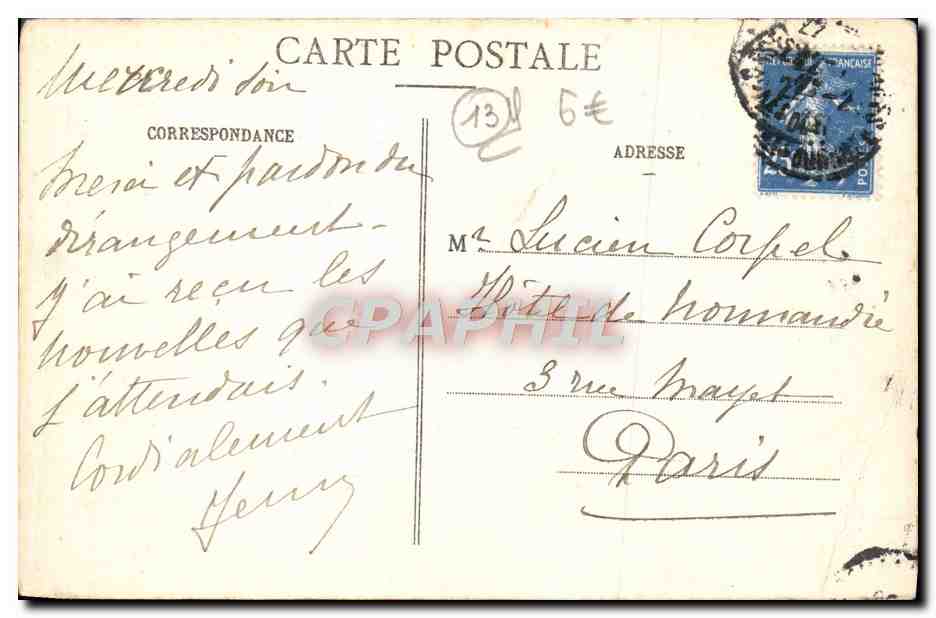 CARTE POSTALE
Mercredi soir
CORRESPONDANCE
Merci et pardon du
dérangement -
J'ai reçu les
nouvelles que
j'attendais.
Cordialement
13
6€
ADRESSE
RÉPUBLIQUE FRANÇAISE
25
POSTES
Mr Lucien Corpel
Hôtel de Normandie
3 rue Mayet
Paris
CPAPHIL